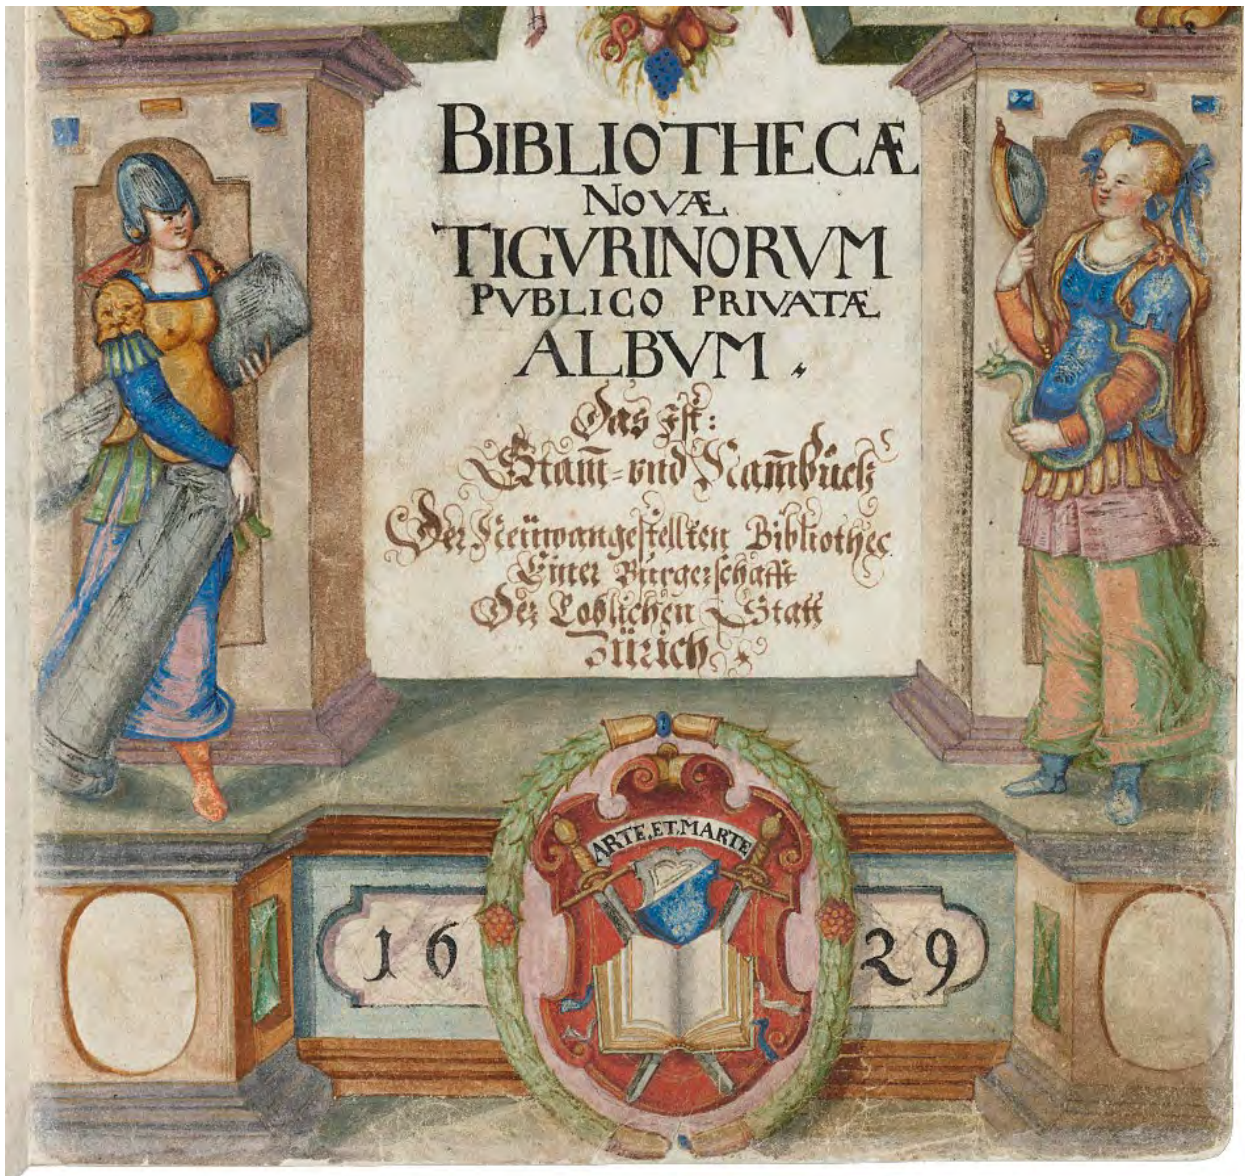 BIBLIOTHECÆ
NOVÆ
TIGVRINORVM
PVBLICO PRIVATÆ
ALBVM.
Das Ist:
Stam̄- vnd Nam̄bůch
Der Neüwangestellten Bibliothec
Einer Burgerschafft
Der Loblichen Statt
Zürich.
ARTE.ET.MARTE
16 29